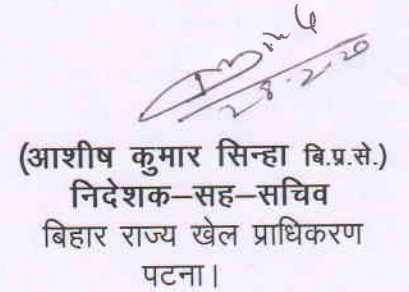 28.2.20
(आशीष कुमार सिन्हा बि.प्र.से.)
निदेशक–सह–सचिव
बिहार राज्य खेल प्राधिकरण
पटना।